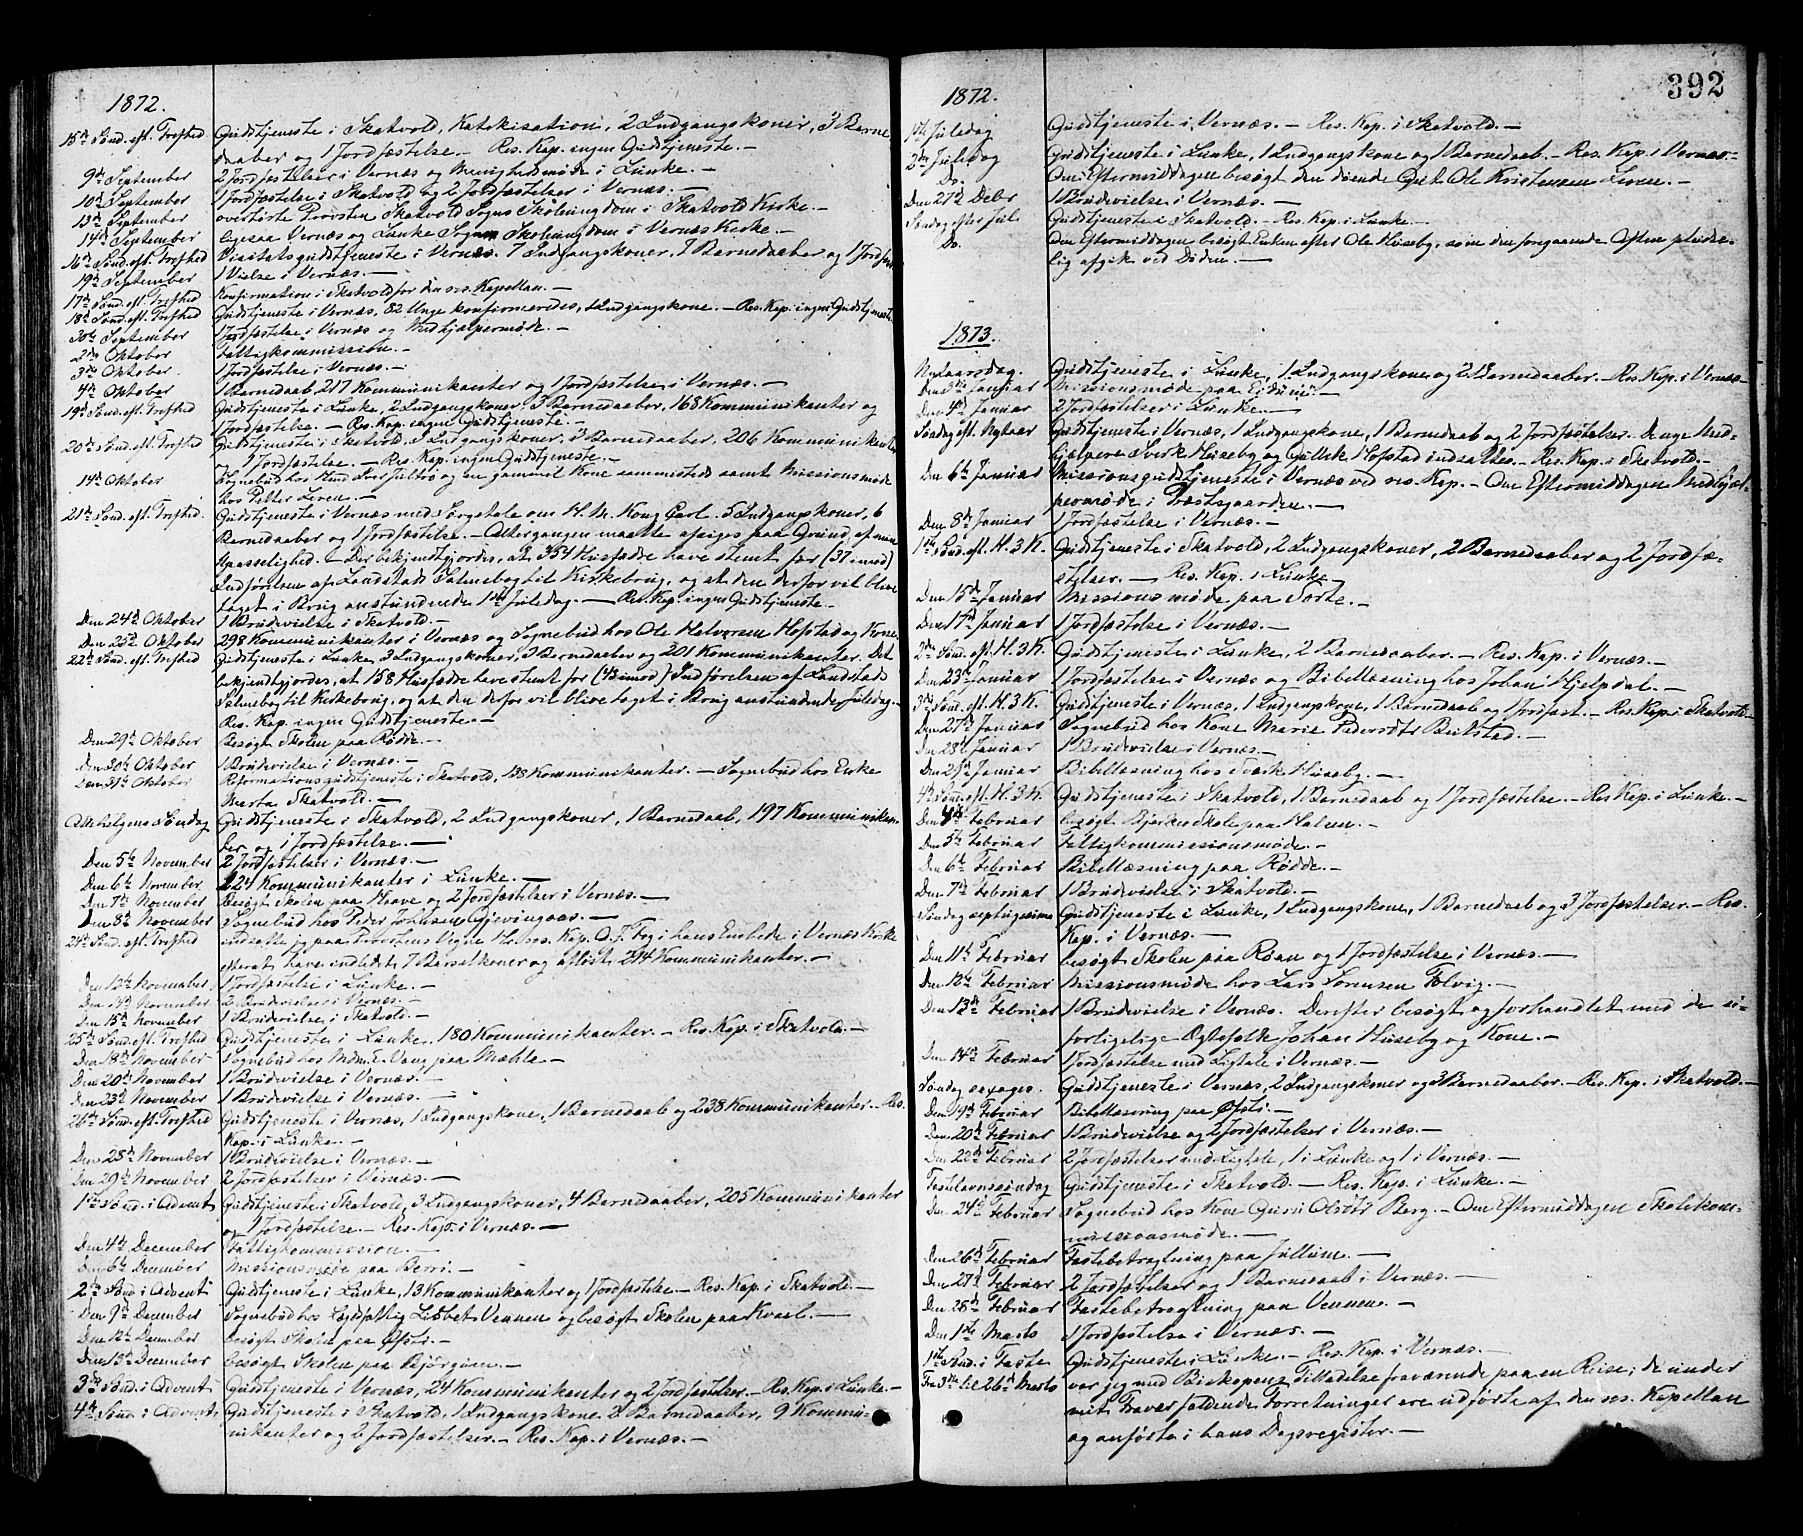 1872.
15de Sönd. eft. Trefhed Gudstjeneste i Skatvold, Katekisation, 2 Indgangskoner, 3 Barne
daaber og 1 Jordfæstelse. — Res. Kap. ingen Gudstjeneste. —
9de September 2 Jordfæstelser i Vernæs og Menighedsmöde i Lunke. —
10de September 1 Jordfæstelse i Skatvold og 2 Jordfæstelser i Vernæs. —
13de September overhörte Provsten Skatvold Sogns Skoleungdom i Skatvold Kirke. —
14de September ligesaa Vernæs og Lunke Sogns Skoleungdom i Vernæs Kirke. —
16de Sönd. eft. Trefhed Visitatsgudstjeneste i Vernæs. 7 Indgangskoner, 7 Barnedaaber og 1 Jordfæst.
19de September 1 Vielse i Vernæs. —
17de Sönd. eft. Trefhed Konfirmation i Skatvold for den res. Kapellan. —
18de Sönd. eft. Trefhed Gudstjeneste i Vernæs, 82 Unge konfirmeredes, 1 Indgangskone. — Res. Kap. ingen Gudstjeneste.
30te September 1 Jordfæstelse i Vernæs og Medhjælpermöde. —
2den Oktober Fattigkommission. —
3die Oktober 1 Jordfæstelse i Vernæs. —
4de Oktober 1 Barnedaab, 217 Kommunikanter og 1 Jordfæstelse i Vernæs. —
19de Sönd. eft. Trefhed Gudstjeneste i Lunke, 2 Indgangskoner, 3 Barnedaaber, 168 Kommunikanter og
1 Jordfæstelse. — Res. Kap. ingen Gudstjeneste. —
20de Sönd. eft. Trefhed Gudstjeneste i Skatvold, 3 Indgangskoner, 3 Barnedaaber, 206 Kommunikanter
og 1 Jordfæstelse. — Res. Kap. ingen Gudstjeneste. —
14de Oktober Sognebud hos og en gammel Kone sammesteds samt Missionsmöde
hos Petter Leren. —
21de Sönd. eft. Trefhed. Gudstjeneste i Vernæs med Sörgetale om H. M. Kong Carl. 5 Indgangskoner, 6
Barnedaaber og 1 Jordfæstelse. — Altergangen maatte afsiges paa Grund af min
Upasselighed. — Der bekjendtgjordes, at 354 Husfædre have stemt for (37 imod)
Indförelsen af Landstads Salmebog til Kirkebrug, og at den derfor vil blive
taget i Brug anstundende 1ste Juledag. — Res. Kap. ingen Gudstjeneste. —
Den 24de Oktober 1 Brudevielse i Skatvold. —
Den 25de Oktober 298 Kommunikanter i Vernæs og Sognebud hos Ole Halvorsen Hofstad og Kone.
22de Sönd. eft. Trefhed Gudstjeneste i Lunke, 3 Indgangskoner, 3 Barnedaaber og 201 Kommunikanter. Det
bekjendtgjordes, at 158 Husfædre have stemt for (43 imod) Indförelsen af Landstads
Salmebog til Kirkebrug, og at den derfor vil blive taget i Brug anstundende Juledag. —
Res. Kap. ingen Gudstjeneste. —
Den 29de Oktober Besögt Skolen paa Rödde. —
Den 30te Oktober 1 Brudevielse i Vernæs. —
Den 31te Oktober Reformationsgudstjeneste i Skatvold, 138 Kommunikanter. — Sognebud hos Enke
Marta Skatvold. —
Allehelgens Söndag Gudstjeneste i Skatvold, 2 Indgangskoner, 1 Barnedaab, 197 Kommunikan-
ter og 1 Jordfæstelse. —
Den 5te November 2 Jordfæstelser i Vernæs. —
Den 6te November 224 Kommunikanter i Lunke. —
Den 7de November Besögt Skolen paa Haave og 2 Jordfæstelser i Vernæs. —
Den 8de November Sognebud hos Peder Johnsen Gjevingaas. —
24de Sönd. eft. Trefhed indsatte jeg paa Provstens Vegne Hr. res. Kap. O. J. Fog i hans Embede i Vernæs Kirke
efterat have indledet 7 Barselkoner og aflöst 274 Kommunikanter. —
Den 12te November 1 Jordfæstelse i Lunke. —
Den 14de November 2 Brudevielser i Vernæs. —
Den 15de November 1 Brudevielse i Skatvold. —
25de Sönd. eft. Trefhed Gudstjeneste i Lunke, 180 Kommunikanter. — Res. Kap. i Skatvold. —
Den 18de November Sognebud hos Mdm. E. Vang paa Mæhle. —
Den 20de November 1 Brudevielse i Vernæs. —
Den 23de November 1 Brudevielse i Vernæs. —
26de Sönd. eft. Trefhed Gudstjeneste i Vernæs, 1 Indgangskone, 1 Barnedaab og 238 Kommunikanter. — Res.
Kap. i Lunke. —
Den 28de November 1 Brudevielse i Vernæs. —
Den 29de November 2 Jordfæstelser i Vernæs. —
1ste Sönd. i Advent Gudstjeneste i Skatvold, 3 Indgangskoner, 4 Barnedaaber, 205 Kommunikanter
og 1 Jordfæstelse. — Res. Kap. i Vernæs. —
Den 4de December Fattigkommission. —
Den 6te December Missionsmöde paa Berri. —
2den Sönd. i Advent Gudstjeneste i Lunke, 13 Kommunikanter og 1 Jordfæstelse. — Res. Kap. i Skatvold. —
Den 9de December Sognebud hos Lægdsfattig Lisbet Vennen og besögt Skolen paa Kvarl. —
Den 12te December besögt Skolen paa Öfsti. —
Den 13de December besögt Skolen paa Björgum. —
3die Sönd. i Advent Gudstjeneste i Vernæs, 24 Kommunikanter og 2 Jordfæstelser. — Res. Kap. i Lunke. —
4de Sönd. i Advent Gudstjeneste i Skatvold, 1 Indgangskone, 2 Barnedaaber, 9 Kommu-
nikanter og 6 Jordfæstelser. — Res. Kap. i Vernæs. —
392
1872.
1ste Juledag Gudstjeneste i Vernæs. — Res. Kap. i Skatvold. —
2den Juledag Gudstjeneste i Lunke, 1 Indgangskone og 1 Barnedaab. — Res. Kap. i Vernæs. —
Do. Om Eftermiddagen besögt den döende Ole Kristensen Leren. —
Den 27de Debr 1 Brudevielse i Vernæs. —
Söndag efter Jul Gudstjeneste i Skatvold. — Res. Kap. i Lunke. —
Do. Om Eftermiddagen besögt Enken efter Ole Huseby, som den foregaaende Aften pludse-
lig afgik ved Döden. —
1873.
Nytaarsdag. Gudstjeneste i Lunke, 1 Indgangskone og 2 Barnedaaber. — Res. Kap. i Vernæs. —
Den 3die Januar Missionsmöde paa Eidum. —
Den 4de Januar 2 Jordfæstelser i Lunke. —
Söndag eft. Nytaar Gudstjeneste i Vernæs, 1 Indgangskone, 1 Barnedaab og 2 Jordfæstelser. De nye Med-
hjælpere Sverk Huseby og Gullik Hofstad indsattes. — Res. Kap. i Skatvold. —
Den 6te Januar Missionsgudstjeneste i Vernæs ved res. Kap. — Om Eftermiddagen Medhjæl-
permöde i Præstegaarden. —
Den 8de Januar 1 Jordfæstelse i Vernæs. —
1ste Sönd. eft. H. 3 K. Gudstjeneste i Skatvold, 2 Indgangskoner, 2 Barnedaaber og 2 Jordfæ-
stelser. — Res. Kap. i Lunke. —
Den 15de Januar Missionsmöde paa Sörte. —
Den 17de Januar 1 Jordfæstelse i Vernæs. —
2den Sönd. eft. H. 3 K. Gudstjeneste i Lunke, 2 Barnedaaber. — Res. Kap. i Vernæs. —
Den 23de Januar 1 Jordfæstelse i Vernæs og Bibellæsning hos Johan Hjelpdal. —
3die Sönd. eft. H. 3 K. Gudstjeneste i Vernæs, 1 Indgangskone, 1 Barnedaab og 1 Jordfæst. — Res. Kap. i Skatvold. —
Den 27de Januar Sognebud hos Kone Marie Pedersdtr Beitstad. —
Den 28de Januar 1 Brudevielse i Vernæs. —
Den 29de Januar Bibellæsning hos Sverk Huseby. —
4de Sönd. eft. H. 3 K. Gudstjeneste i Skatvold, 1 Barnedaab og 1 Jordfæstelse. — Res. Kap. i Lunke. —
Den 4de Februar besögt Bjerkens Skole paa Halsen. —
Den 5te Februar Fattigkommissionsmöde. —
Den 6te Februar Bibellæsning paa Rödde. —
Den 7de Februar 1 Brudevielse i Skatvold. —
Söndag septuagesima Gudstjeneste i Lunke, 1 Indgangskone, 1 Barnedaab og 3 Jordfæstelser. — Res.
Kap. i Vernæs. —
Den 11te Februar besögt Skolen paa Röan og 1 Jordfæstelse i Vernæs. —
Den 12te Februar Missionsmöde hos Lars Lorensen Folvig. —
Den 13de Februar 1 Brudevielse i Vernæs. Derefter besögt og forhandlet med de u-
forligelige Ægtefolk Johan Huseby og Kone. —
Den 14de Februar 1 Jordfæstelse med Ligtale i Vernæs. —
Söndag sexages. Gudstjeneste i Vernæs, 2 Indgangskoner og 3 Barnedaaber. — Res. Kap. i Skatvold. —
Den 19de Februar Bibellæsning paa Öfsti. —
Den 20de Februar 1 Brudevielse og 2 Jordfæstelser i Vernæs. —
Den 22de Februar 2 Jordfæstelser med Ligtale, 1 i Lunke og 1 i Vernæs. —
Fastelavnssöndag Gudstjeneste i Skatvold. — Res. Kap. i Lunke. —
Den 24de Februar Sognebud hos Kone Guru Olsdtr Berg. — Om Eftermiddagen Skolekom-
missionsmöde. —
Den 26de Februar Fastebetragtning paa Jullum. —
Den 27de Februar 2 Jordfæstelser og 1 Barnedaab i Vernæs. —
Den 28de Februar Fastebetragtning paa Vennen. —
Den 1ste Marts 1 Jordfæstelse i Vernæs. —
1ste Sönd. i Faste Gudstjeneste i Lunke. — Res. Kap. i Vernæs. —
Fra 3die til 26de Marts var jeg med Biskopens Tilladelse fraværende paa en Reise; de under
mit Fravær faldende Forretninger ere udförte af den res. Kapellan
og anförte i hans Dagsregister. —